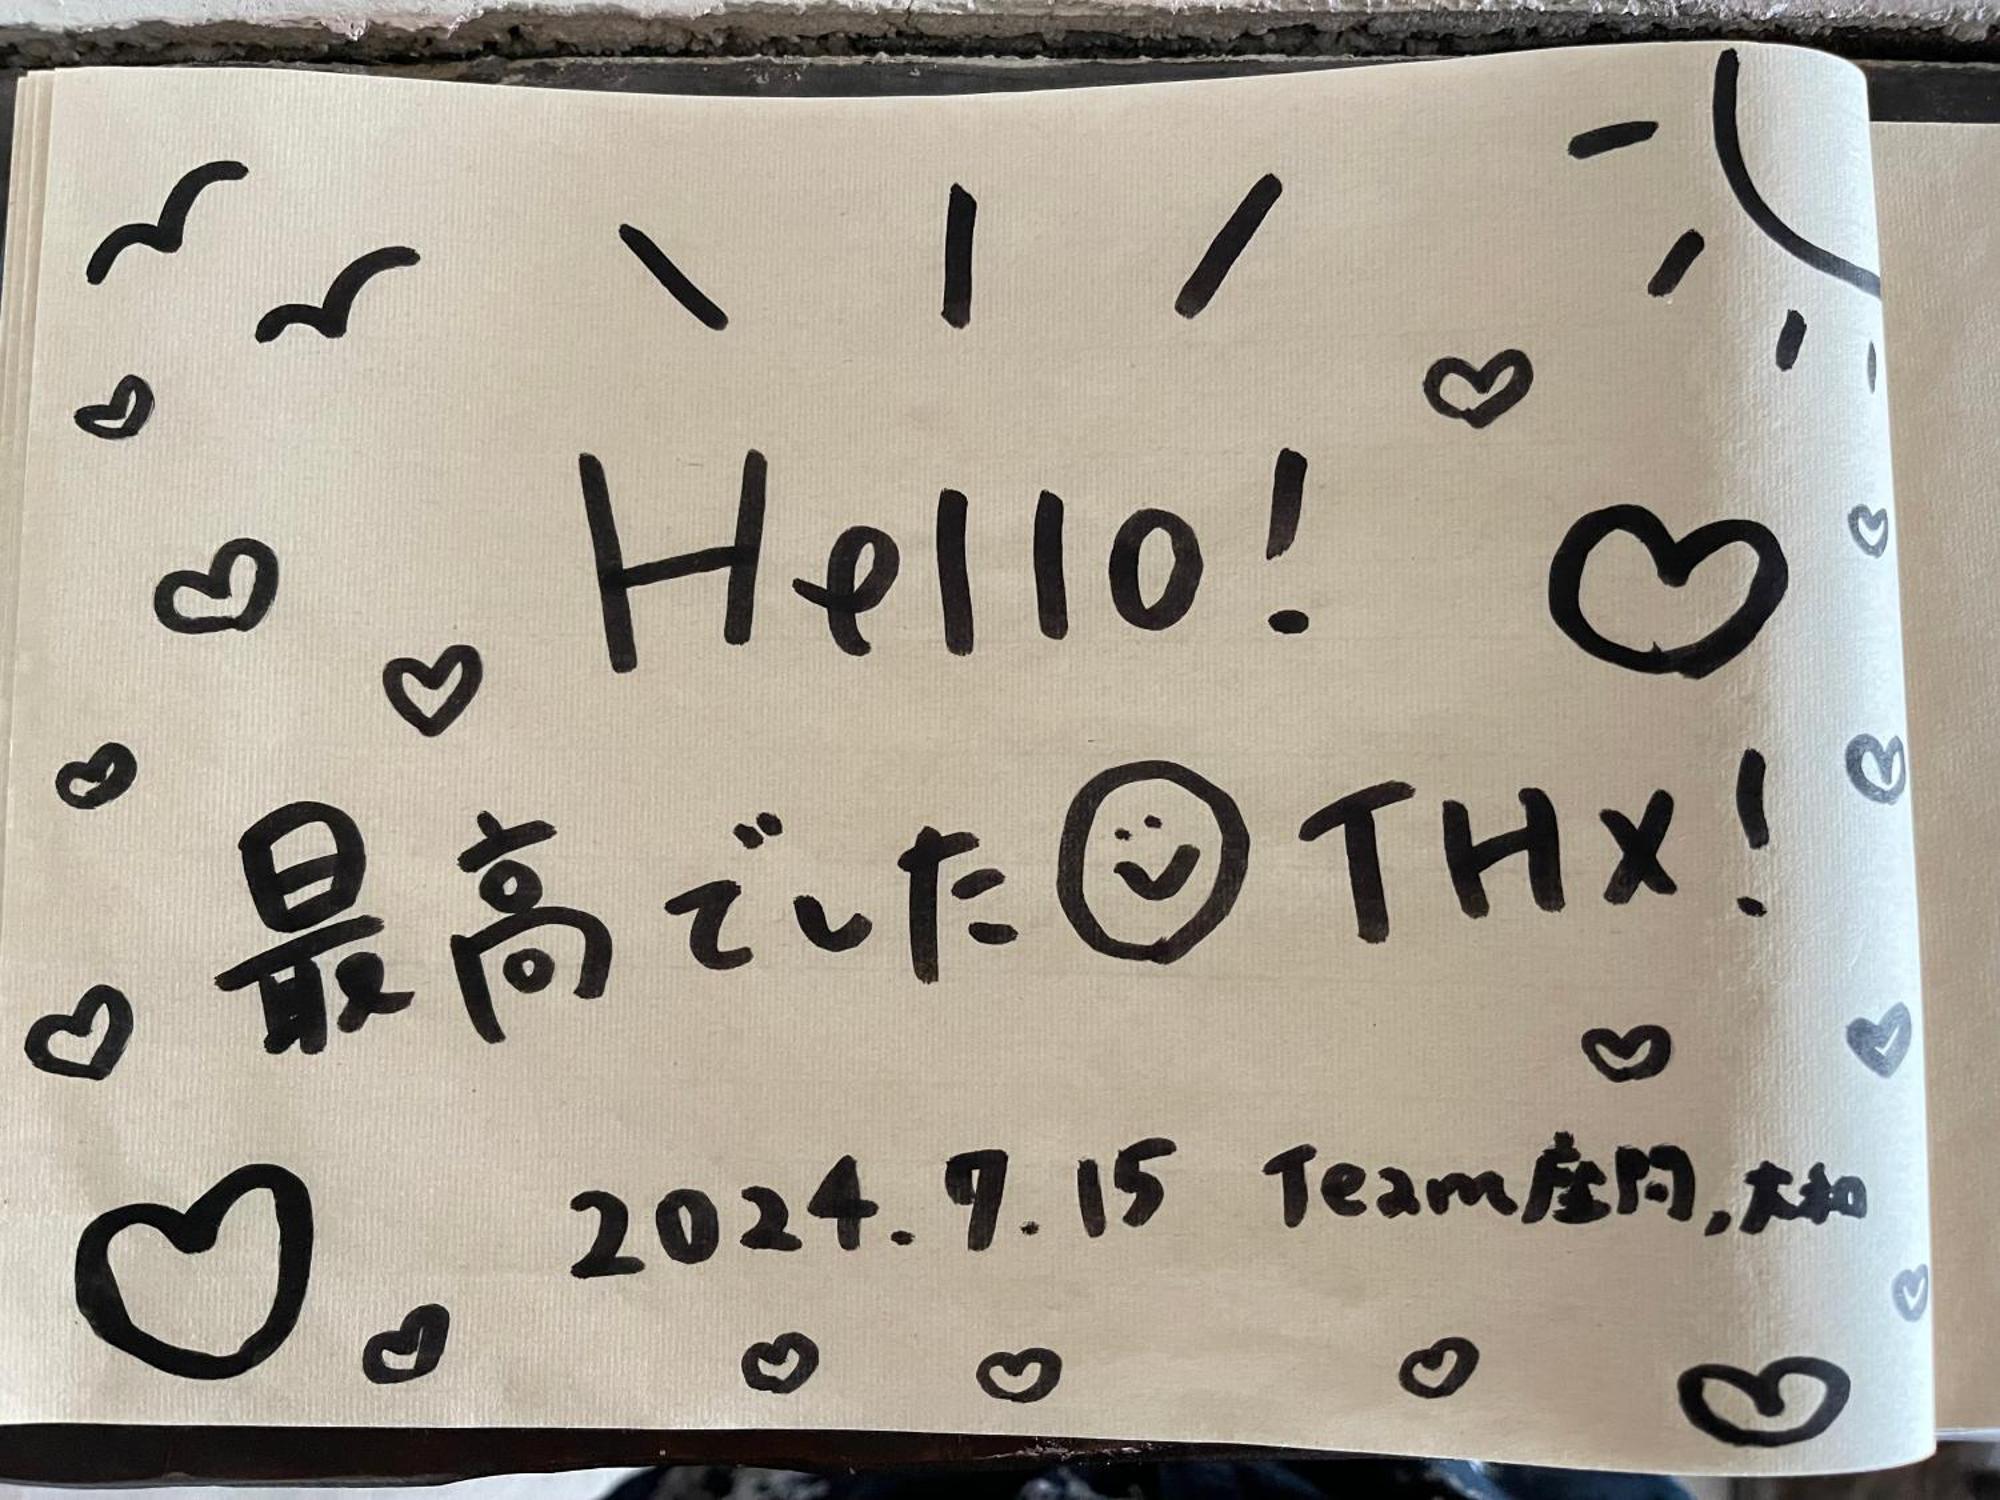 Hello!
最高でした THX!
2024.7.15 Team座間,大和